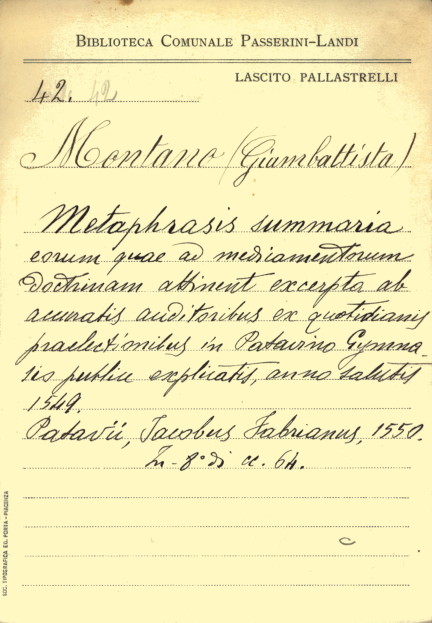 BIBLIOTECA COMUNALE PASSERINI-LANDI
LASCITO PALLASTRELLI
42. 42
Montano (Giambattista)
Metaphrasis summaria
eorum quae ad medicamentorum
doctrinam attinent excerpta ab
accuratis auditoribus ex quotidianis
praelectionibus in Patavino Gymna-
sio publice explicatis, anno salutis
1549.
Patavii, Jacobus Fabrianus, 1550.
In-8° di c. 64.
c
SOC. TIPOGRAFICA ED. PORTA - PIACENZA